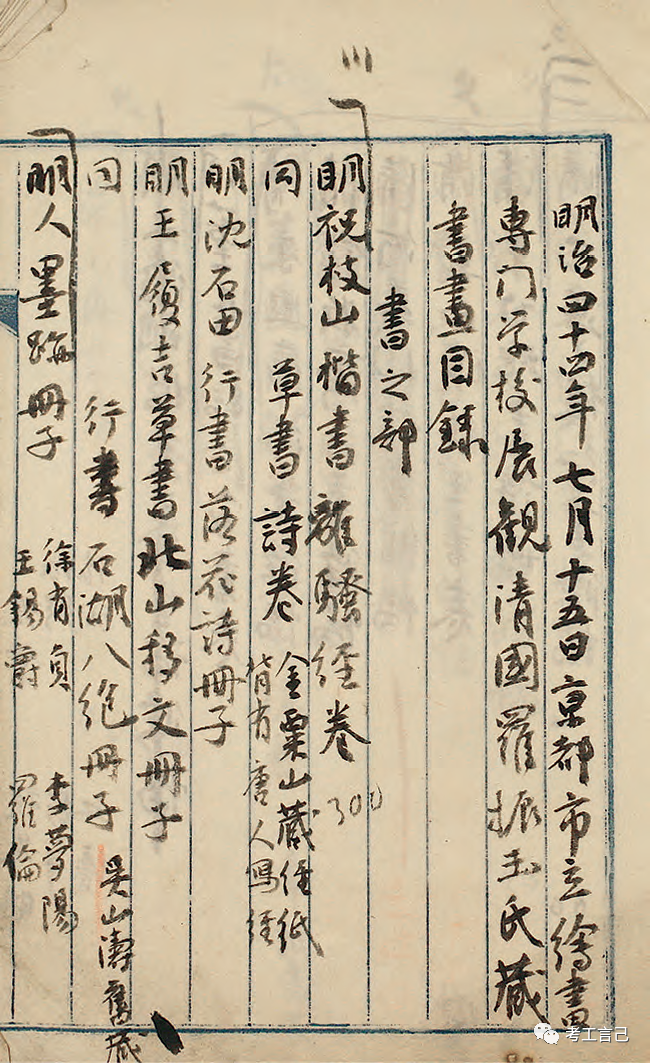 明治四十四年七月十五日京都市立繪畫
專门学校展觀清國羅振玉氏藏
書畫目錄
書之部
明祝枝山楷書離騷經卷 300
仝 草書詩卷 金粟山藏经紙
背有唐人写経
明沈石田行書落花詩冊子
明王履吉草書北山移文冊子
仝 行書石湖八絕冊子 吴山濤舊藏
明人墨跡冊子 徐有貞 李夢陽
王錫爵 羅倫
考工言己